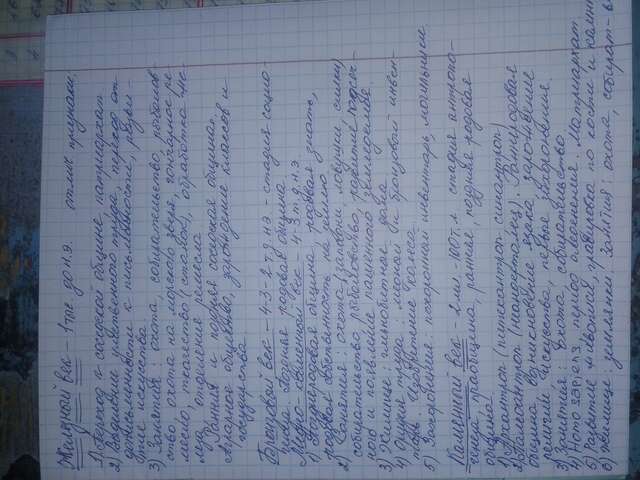 Железный век – 1 тыс. до н.э. отлич признаки.
1) Переход к соседской общине, патриархат
2) Выделение умственного труда, переход от
дописьменности к письменности, разви-
тие искусства.
3) Занятия: охота, собирательство, рыболов-
ство, охота на морского зверя, гончарное ре-
месло, ткачество (станок), обработка же-
леза, отделение ремесла
Ранняя и поздняя соседская община.
Аграрное общество, зарождение классов и
государства
Бронзовый век – 4-3-2 т.д.н.э. - стадия социо-
генеза. Поздняя родовая община.
Медно-каменный век - 4-3 т.д.н.э.
1) Позднеродовая община, родовая знать,
родовая собственность на землю
2) Занятия: охота (западни, ловушки, силки)
собирательство, рыболовство, развитие подсеч-
ного и появление пашенного земледелия.
3) Жилище: глинобитные дома
4) Орудия труда: медный и бронзовый инвен-
тарь. Изобретение колеса
5) Захоронения: похоронный инвентарь, могильники.
Каменный век - 2 мл. -100 т.л стадия антропо-
генеза, праобщина, ранняя, поздняя родовая
община
1) Архантроп (питекантроп синантроп)
2) Палеоантроп (неандерталец). Раннеродовая
община, возникновение языка, зарождение
религии, искусства, первые захоронения.
3) Занятия: охота, собирательство
4) Homo sapiens, период оледенения. Матриархат
5) Развитие живописи, гравировка по кости и
6) Жилище: землянки. Занятия: охота, собират-